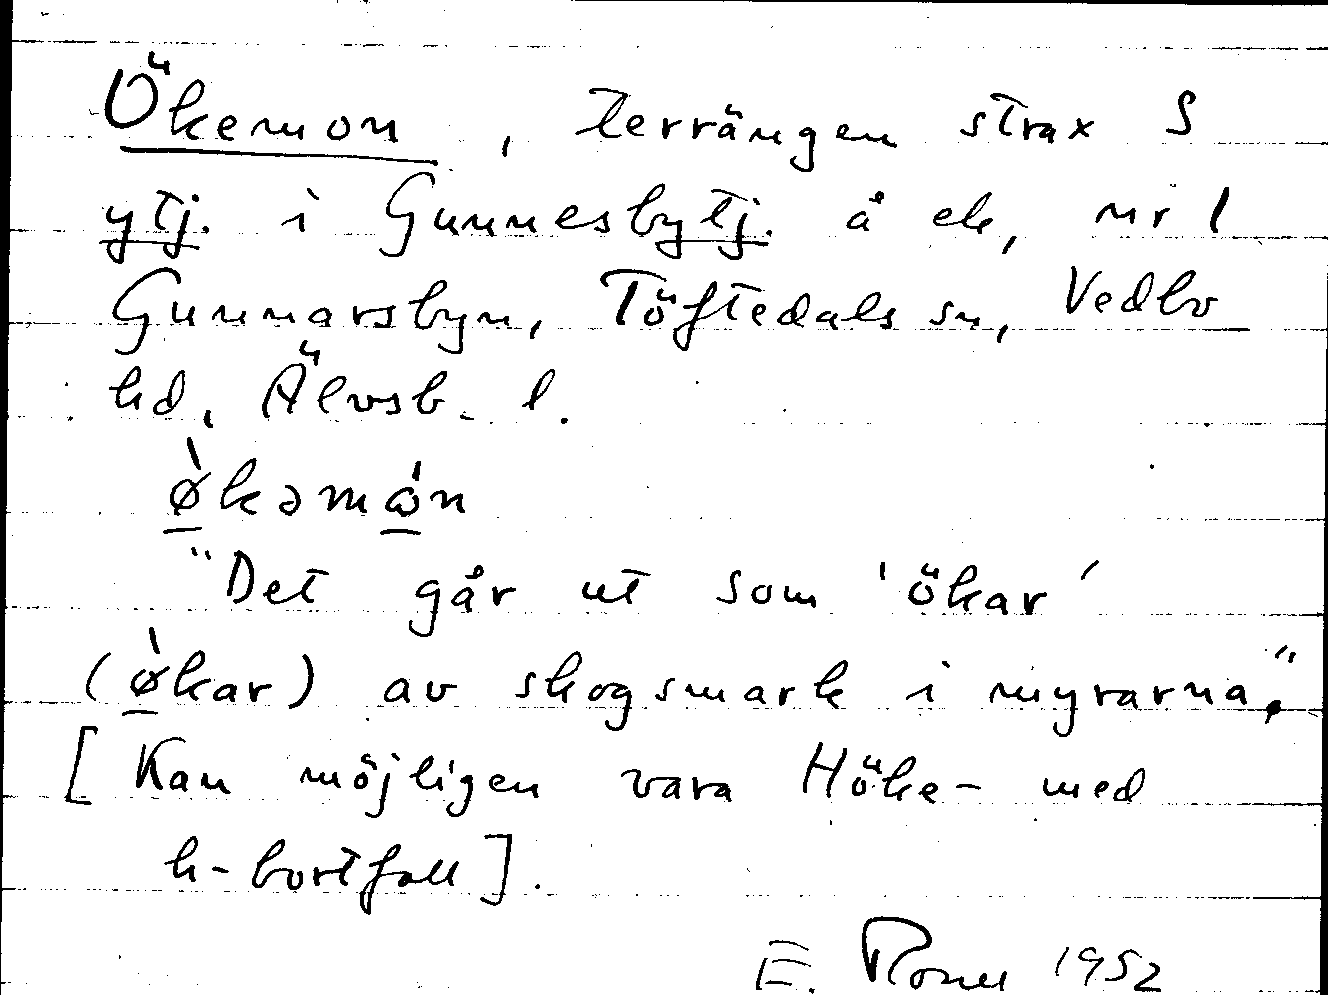 Ökemon, terrängen strax S
ytj. i Gunnesbytj. å ek, nr 1
Gunnarsbyn, Töftedals sn, Vedbo
hd, Älvsb. l.
ø̀kəmón
"Det går ut som 'ökar'
(ø̀kar) av skogsmark i myrarna."
[Kan möjligen vara Höke- med
h-bortfall].
E. 1952